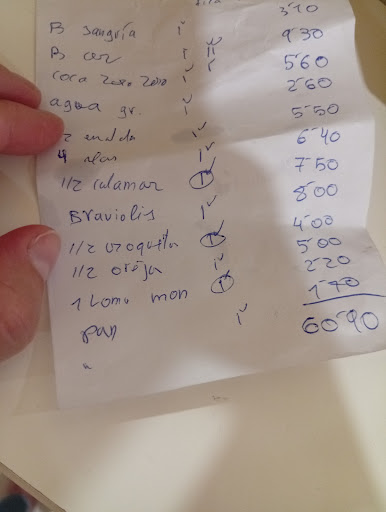 3'10
B sangría 1 9'30
B cer 1 11 5'60
coca zero zero 1 2'60
agua gr. 1 5'50
1/2 1 6'40
4 alas 1 7'50
1/2 calamar 1 8'00
Braviolis 1 4'00
1/2 croqueta 1 5'00
1/2 oreja 1 2'20
1 lomo mon 1 1'70
pan 1 60'90
"